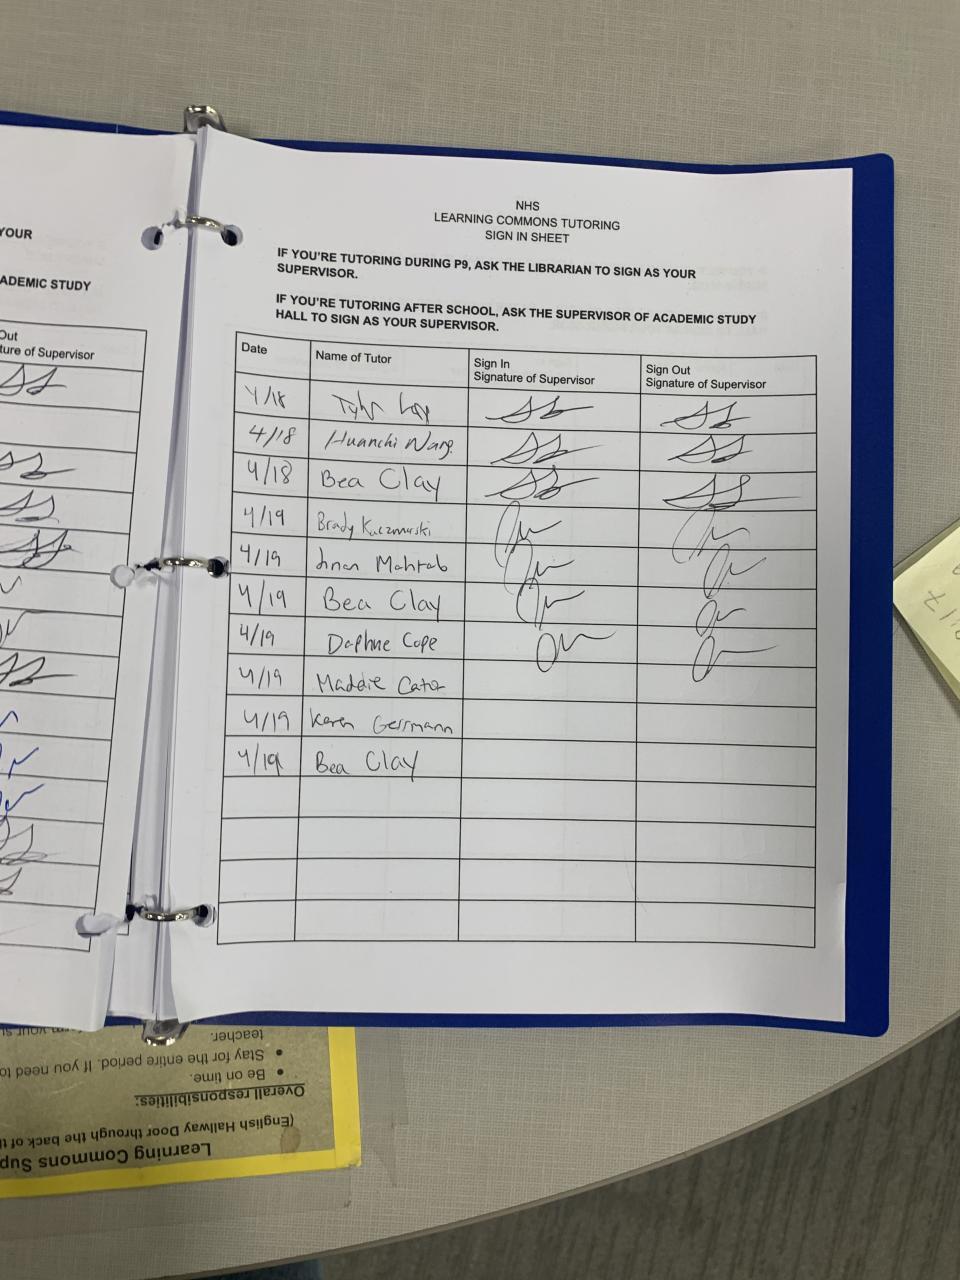 YOUR
ADEMIC STUDY
Out
ture of Supervisor
NHS
LEARNING COMMONS TUTORING
SIGN IN SHEET
IF YOU'RE TUTORING DURING P9, ASK THE LIBRARIAN TO SIGN AS YOUR
SUPERVISOR.
IF YOU'RE TUTORING AFTER SCHOOL, ASK THE SUPERVISOR OF ACADEMIC STUDY
HALL TO SIGN AS YOUR SUPERVISOR.
Date Name of Tutor Sign In Signature of Supervisor Sign Out Signature of Supervisor
4/18 Tyler
4/18 Huanchi Wang
4/18 Bea Clay
4/19 Brady Kaczmarski
4/19 Mahtab
4/19 Bea Clay
4/19 Daphne Cope
4/19 Maddie Cator
4/19 Karen Gerrmann
4/19 Bea Clay
Learning Commons Sup
(English Hallway Door through the back of th
Overall responsibilities:
Be on time.
Stay for the entire period. If you need to
teacher.